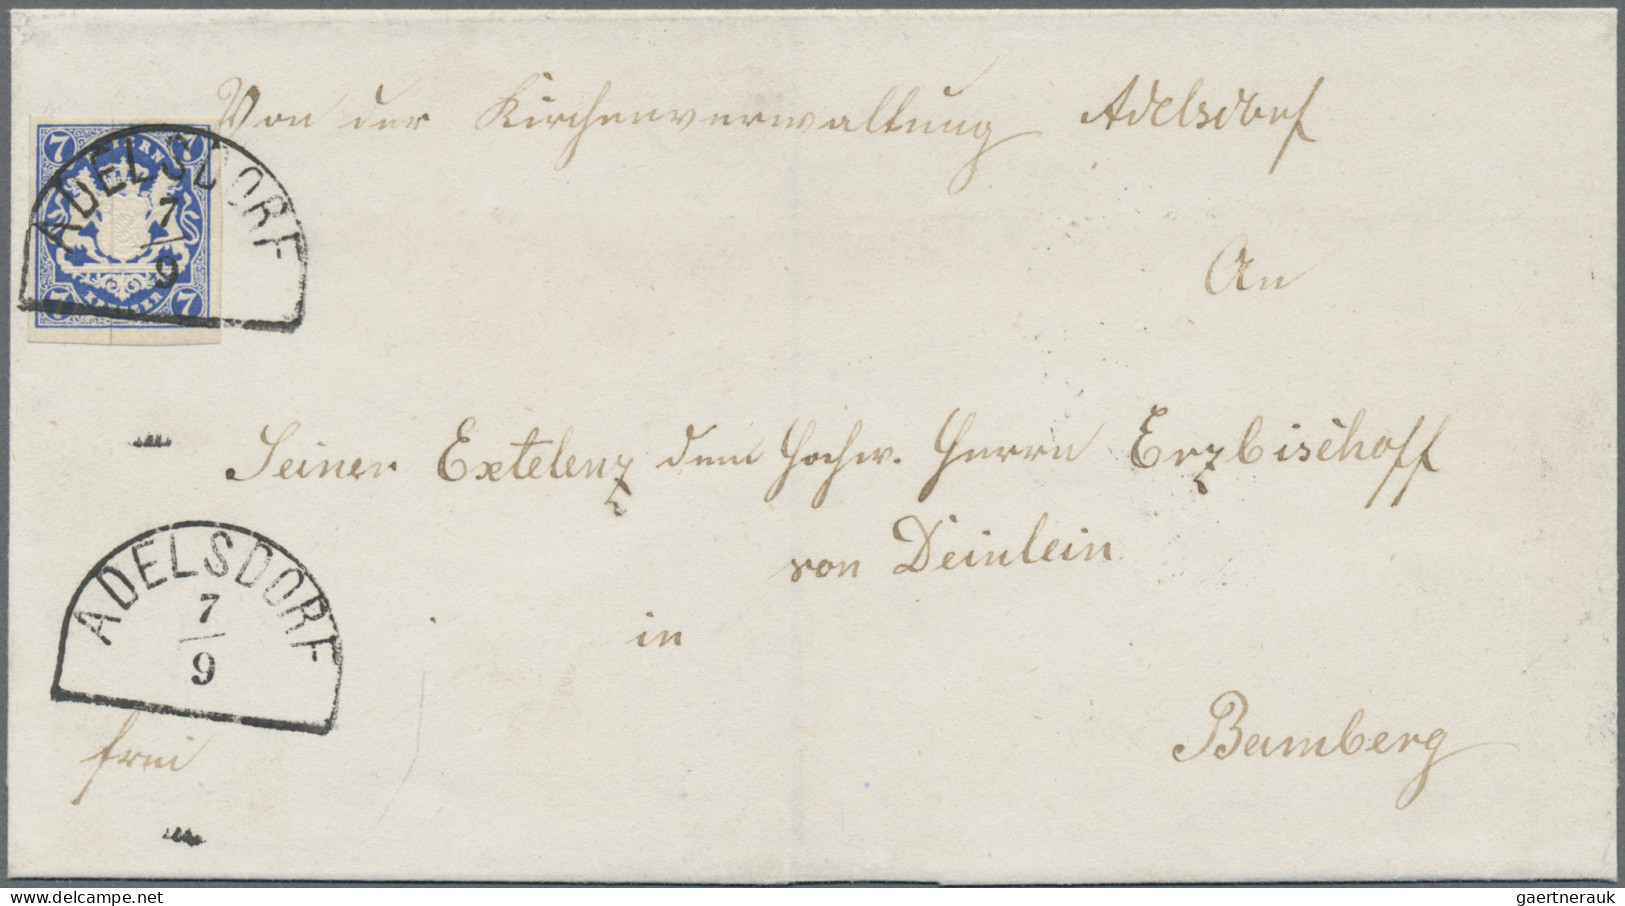 Von der Kirchenverwaltung Adelsdorf
7 BAYERN 7
ADELSDORF
7
9
7 KREUZER 7
An
Seiner Extelenz dem Hochw. Herrn Erzbischoff
von Deinlein
ADELSDORF
7
9
in
Bamberg
frei
delcampe.net
gaertnerauk